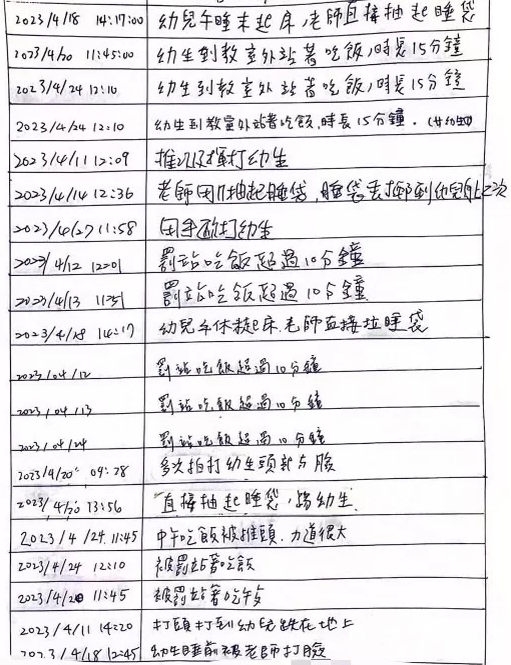 2023/4/18 14:17:00 幼兒午睡未起床,老師直接抽起睡袋
2023/4/20 11:45:00 幼生到教室外站著吃飯,時長15分鐘
2023/4/24 12:10 幼生到教室外站著吃飯,時長15分鐘
2023/4/24 12:10 幼生到教室外站著吃飯,時長15分鐘.
2023/4/11 12:09 推以及揮打幼生
2023/4/14 12:36 老師用力抽起睡袋,睡袋丟擲到幼兒身上2次
2023/4/27 11:58 用手敲打幼生
2023/4/12 12:01 罰站吃飯超過10分鐘
2023/4/13 11:51 罰站吃飯超過10分鐘
2023/4/18 14:17 幼兒午休起床,老師直接拉睡袋
2023/04/12 罰站吃飯超過10分鐘
2023/04/13 罰站吃飯超過10分鐘
2023/04/24 罰站吃飯超過10分鐘
2023/4/20 09:28 多次拍打幼生頭部与臉
2023/4/20 13:56 直接抽起睡袋,幼生
2023/4/24 11:45 中午吃飯被推頭.力道很大
2023/4/24 12:10 被罰站著吃飯
2023/4/20 11:45 被罰站著吃午餐
2023/4/11 14:20 打頭打到幼兒跌在地上
2023/4/18 12:45 幼生睡前被老師打臉